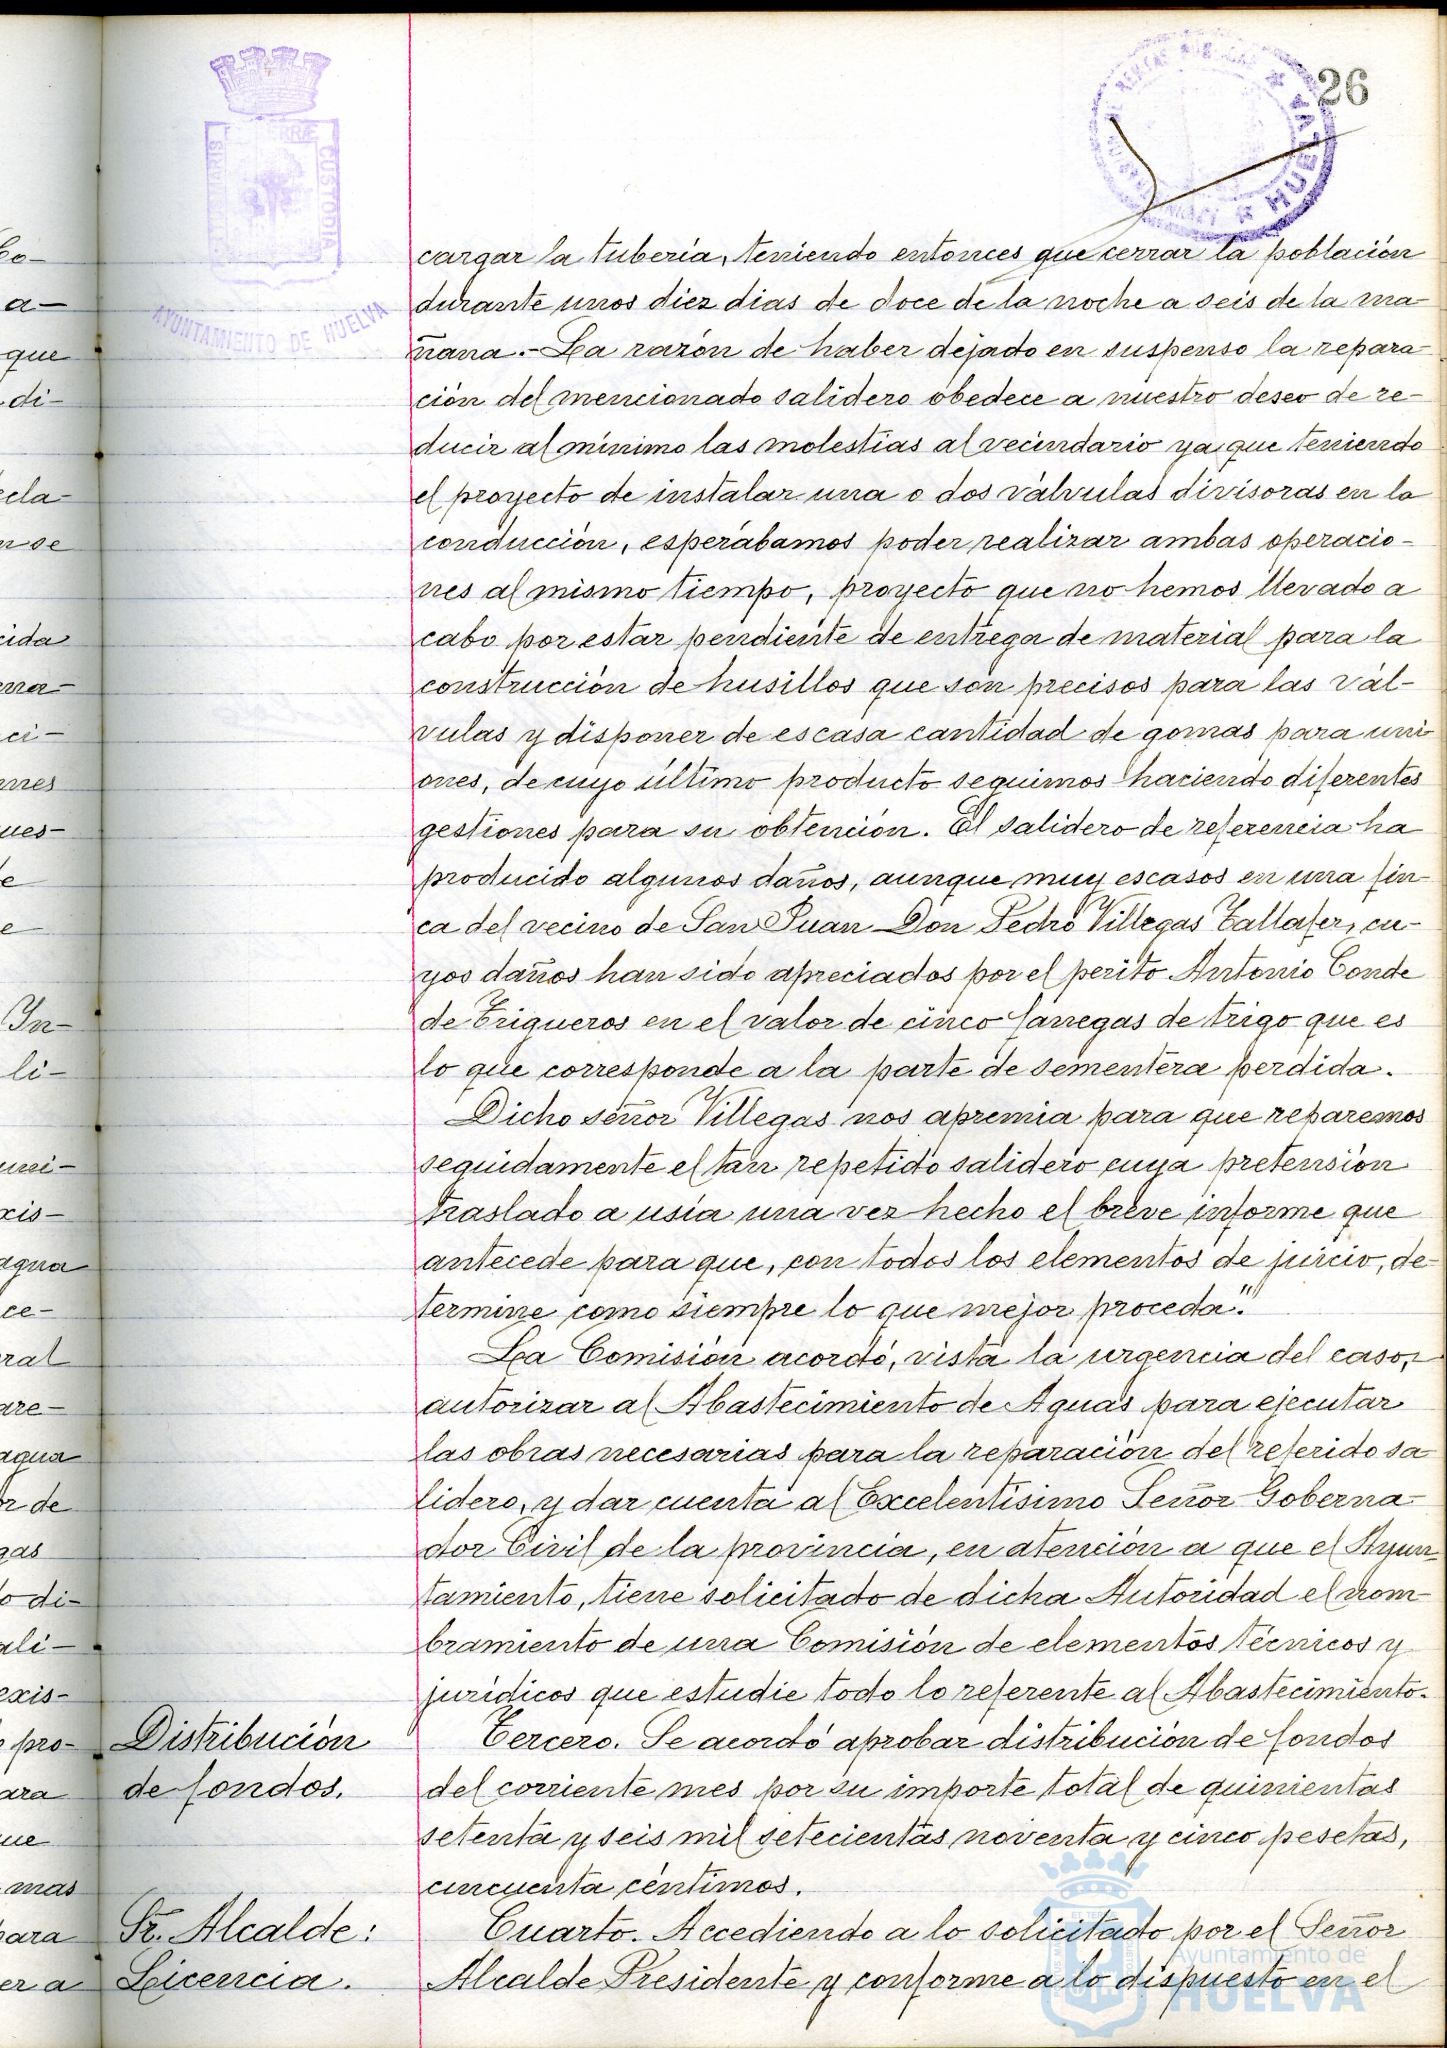 26
HUELVA
CUSTODIA
AYUNTAMIENTO DE HUELVA
cargar la tubería, teniendo entonces que cerrar la población
durante unos diez dias de doce de la noche a seis de la ma-
ñana.- La razón de haber dejado en suspenso la repara-
ción del mencionado salidero obedece a nuestro deseo de re-
ducir al mínimo las molestias al vecindario ya que teniendo
el proyecto de instalar una o dos válvulas divisoras en la
conducción, esperábamos poder realizar ambas operacio-
nes al mismo tiempo, proyecto que no hemos llevado a
cabo por estar pendiente de entrega de material para la
construcción de husillos que son precisos para las vál-
vulas y disponer de escasa cantidad de gomas para uni-
ones, de cuyo último producto seguimos haciendo diferentes
gestiones para su obtención. El salidero de referencia ha
producido algunos daños, aunque muy escasos en una fin-
ca del vecino de San Juan Don Pedro Villegas Tallafer, cu-
yos daños han sido apreciados por el perito Antonio Conde
de Trigueros en el valor de cinco fanegas de trigo que es
lo que corresponde a la parte de sementera perdida.
Dicho señor Villegas nos apremia para que reparemos
seguidamente el tan repetido salidero cuya pretensión
traslado a usía una vez hecho el breve informe que
antecede para que, con todos los elementos de juicio, de-
termine como siempre lo que mejor proceda".
La Comisión acordó, vista la urgencia del caso,
autorizar al Abastecimiento de Aguas para ejecutar
las obras necesarias para la reparación del referido sa-
lidero, y dar cuenta al Excelentísimo Señor Goberna-
dor Civil de la provincia, en atención a que el Ayun-
tamiento, tiene solicitado de dicha Autoridad el nom-
bramiento de una Comisión de elementos técnicos y
jurídicos que estudie todo lo referente al Abastecimiento.
Distribución
de fondos.
Tercero. Se acordó aprobar distribución de fondos
del corriente mes por su importe total de quinientas
setenta y seis mil setecientas noventa y cinco pesetas,
cincuenta céntimos.
Sr. Alcalde:
Licencia.
Cuarto. Accediendo a lo solicitado por el Señor
Alcalde Presidente y conforme a lo dispuesto en el
Ayuntamiento de
HUELVA